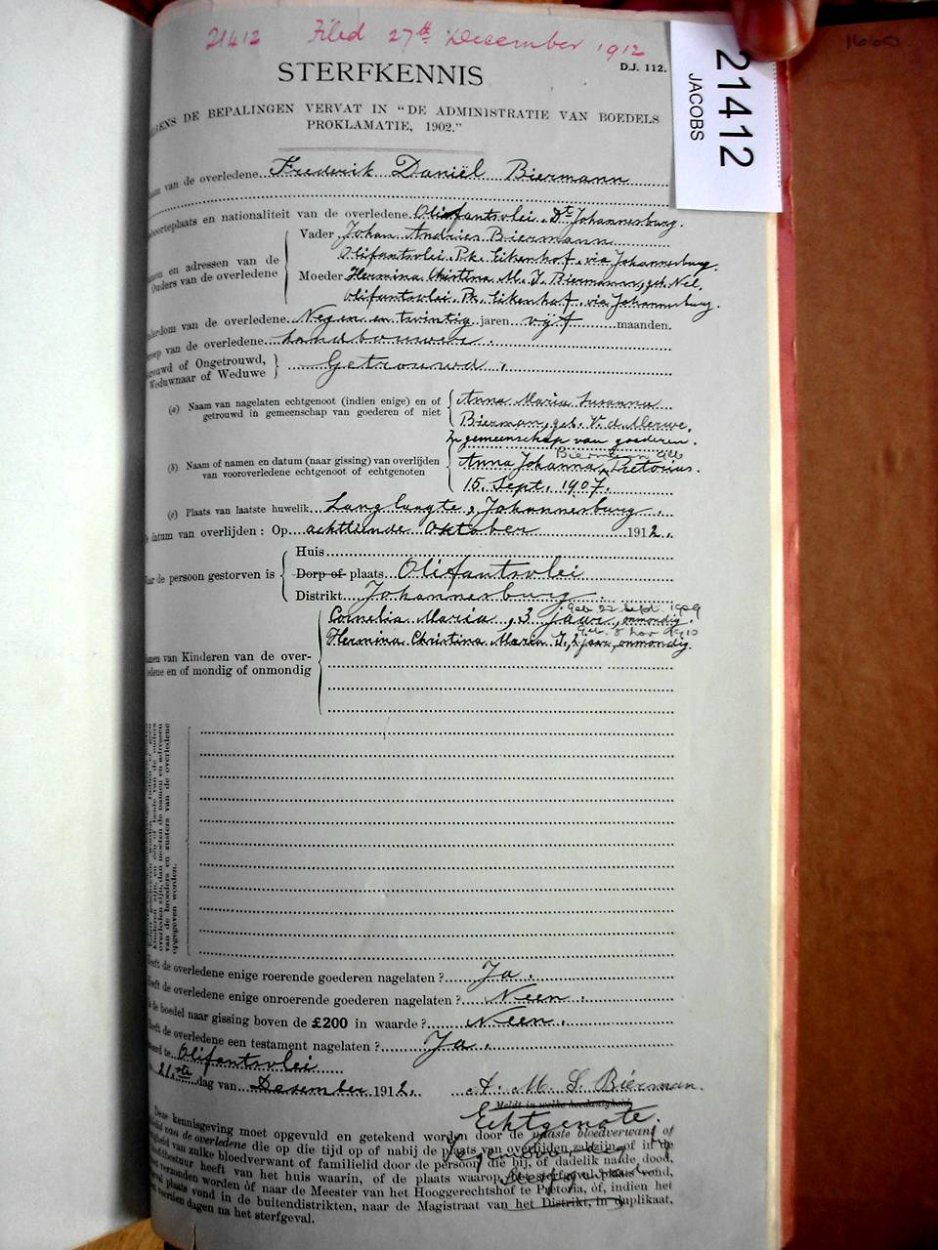 21412 Filed 27th December 1912
1660
D.J. 112.
21412
JACOBS
STERFKENNIS
DE BEPALINGEN VERVAT IN "DE ADMINISTRATIE VAN BOEDELS
PROKLAMATIE, 1902."
van de overledene Frederik Daniël Biermann
en nationaliteit van de overledene. Olifantsvlei. Dt. Johannesburg.
en adressen van de
Ouders van de overledene
Vader Johan Andries Biermann
Olifantsvlei. P.k. Eikenhof, via Johannesburg.
Moeder Hermina Christina M. J. Biermann, geb. Nel,
Olifantsvlei. Pk. Eikenhof, via Johannesburg.
van de overledene Negen en twintig jaren vijf maanden.
van de overledene Landbouwer.
of Ongetrouwd,
Weduwnaar of Weduwe
Getrouwd.
(a) Naam van nagelaten echtgenoot (indien enige) en of
getrouwd in gemeenschap van goederen of niet
Anna Maria Susanna
Bierman, geb. V. d. Merwe,
In gemeenschap van goederen.
(b) Naam of namen en datum (naar gissing) van overlijden
van vooroverledene echtgenoot of echtgenoten
Anna Johanna Biermann geb Pretorius.
15. Sept. 1907.
(c) Plaats van laatste huwelik. Langlaagte, Johannesburg.
datum van overlijden: Op achttiende Oktober 1912.
de persoon gestorven is
Huis
Dorp of plaats Olifantsvlei
Distrikt Johannesburg.
van Kinderen van de over-
ledene en of mondig of onmondig
Cornelia Maria, 3 jaar, onmondig. Geb. 22 Sept. 1909
Hermina Christina Maria J, 2 jaar, onmondig. Geb. 1910
van de broeders en zusters van de overledene
opgegeven worden.
de overledene enige roerende goederen nagelaten? Ja.
de overledene enige onroerende goederen nagelaten? Neen.
de boedel naar gissing boven de £200 in waarde? Neen.
de overledene een testament nagelaten? Ja.
Olifantsvlei
21ste dag van Desember 1912.
A. M. S. Bierman.
Meldt in welke hoedanigheid
Echtgenote.
Deze kennisgeving moet opgevuld en getekend worden door de naaste bloedverwant of
van de overledene die op die tijd op of nabij de plaats van overlijden zal zijn, of in de
van zulke bloedverwant of familielid door de persoon die bij, of dadelik na de dood,
heeft van het huis waarin, of de plaats waarop, het sterfgeval plaats vond,
worden óf naar de Meester van het Hooggerechtshof te Pretoria, óf, indien het
plaats vond in de buitendistrikten, naar de Magistraat van het Distrikt, in duplikaat,
dagen na het sterfgeval.